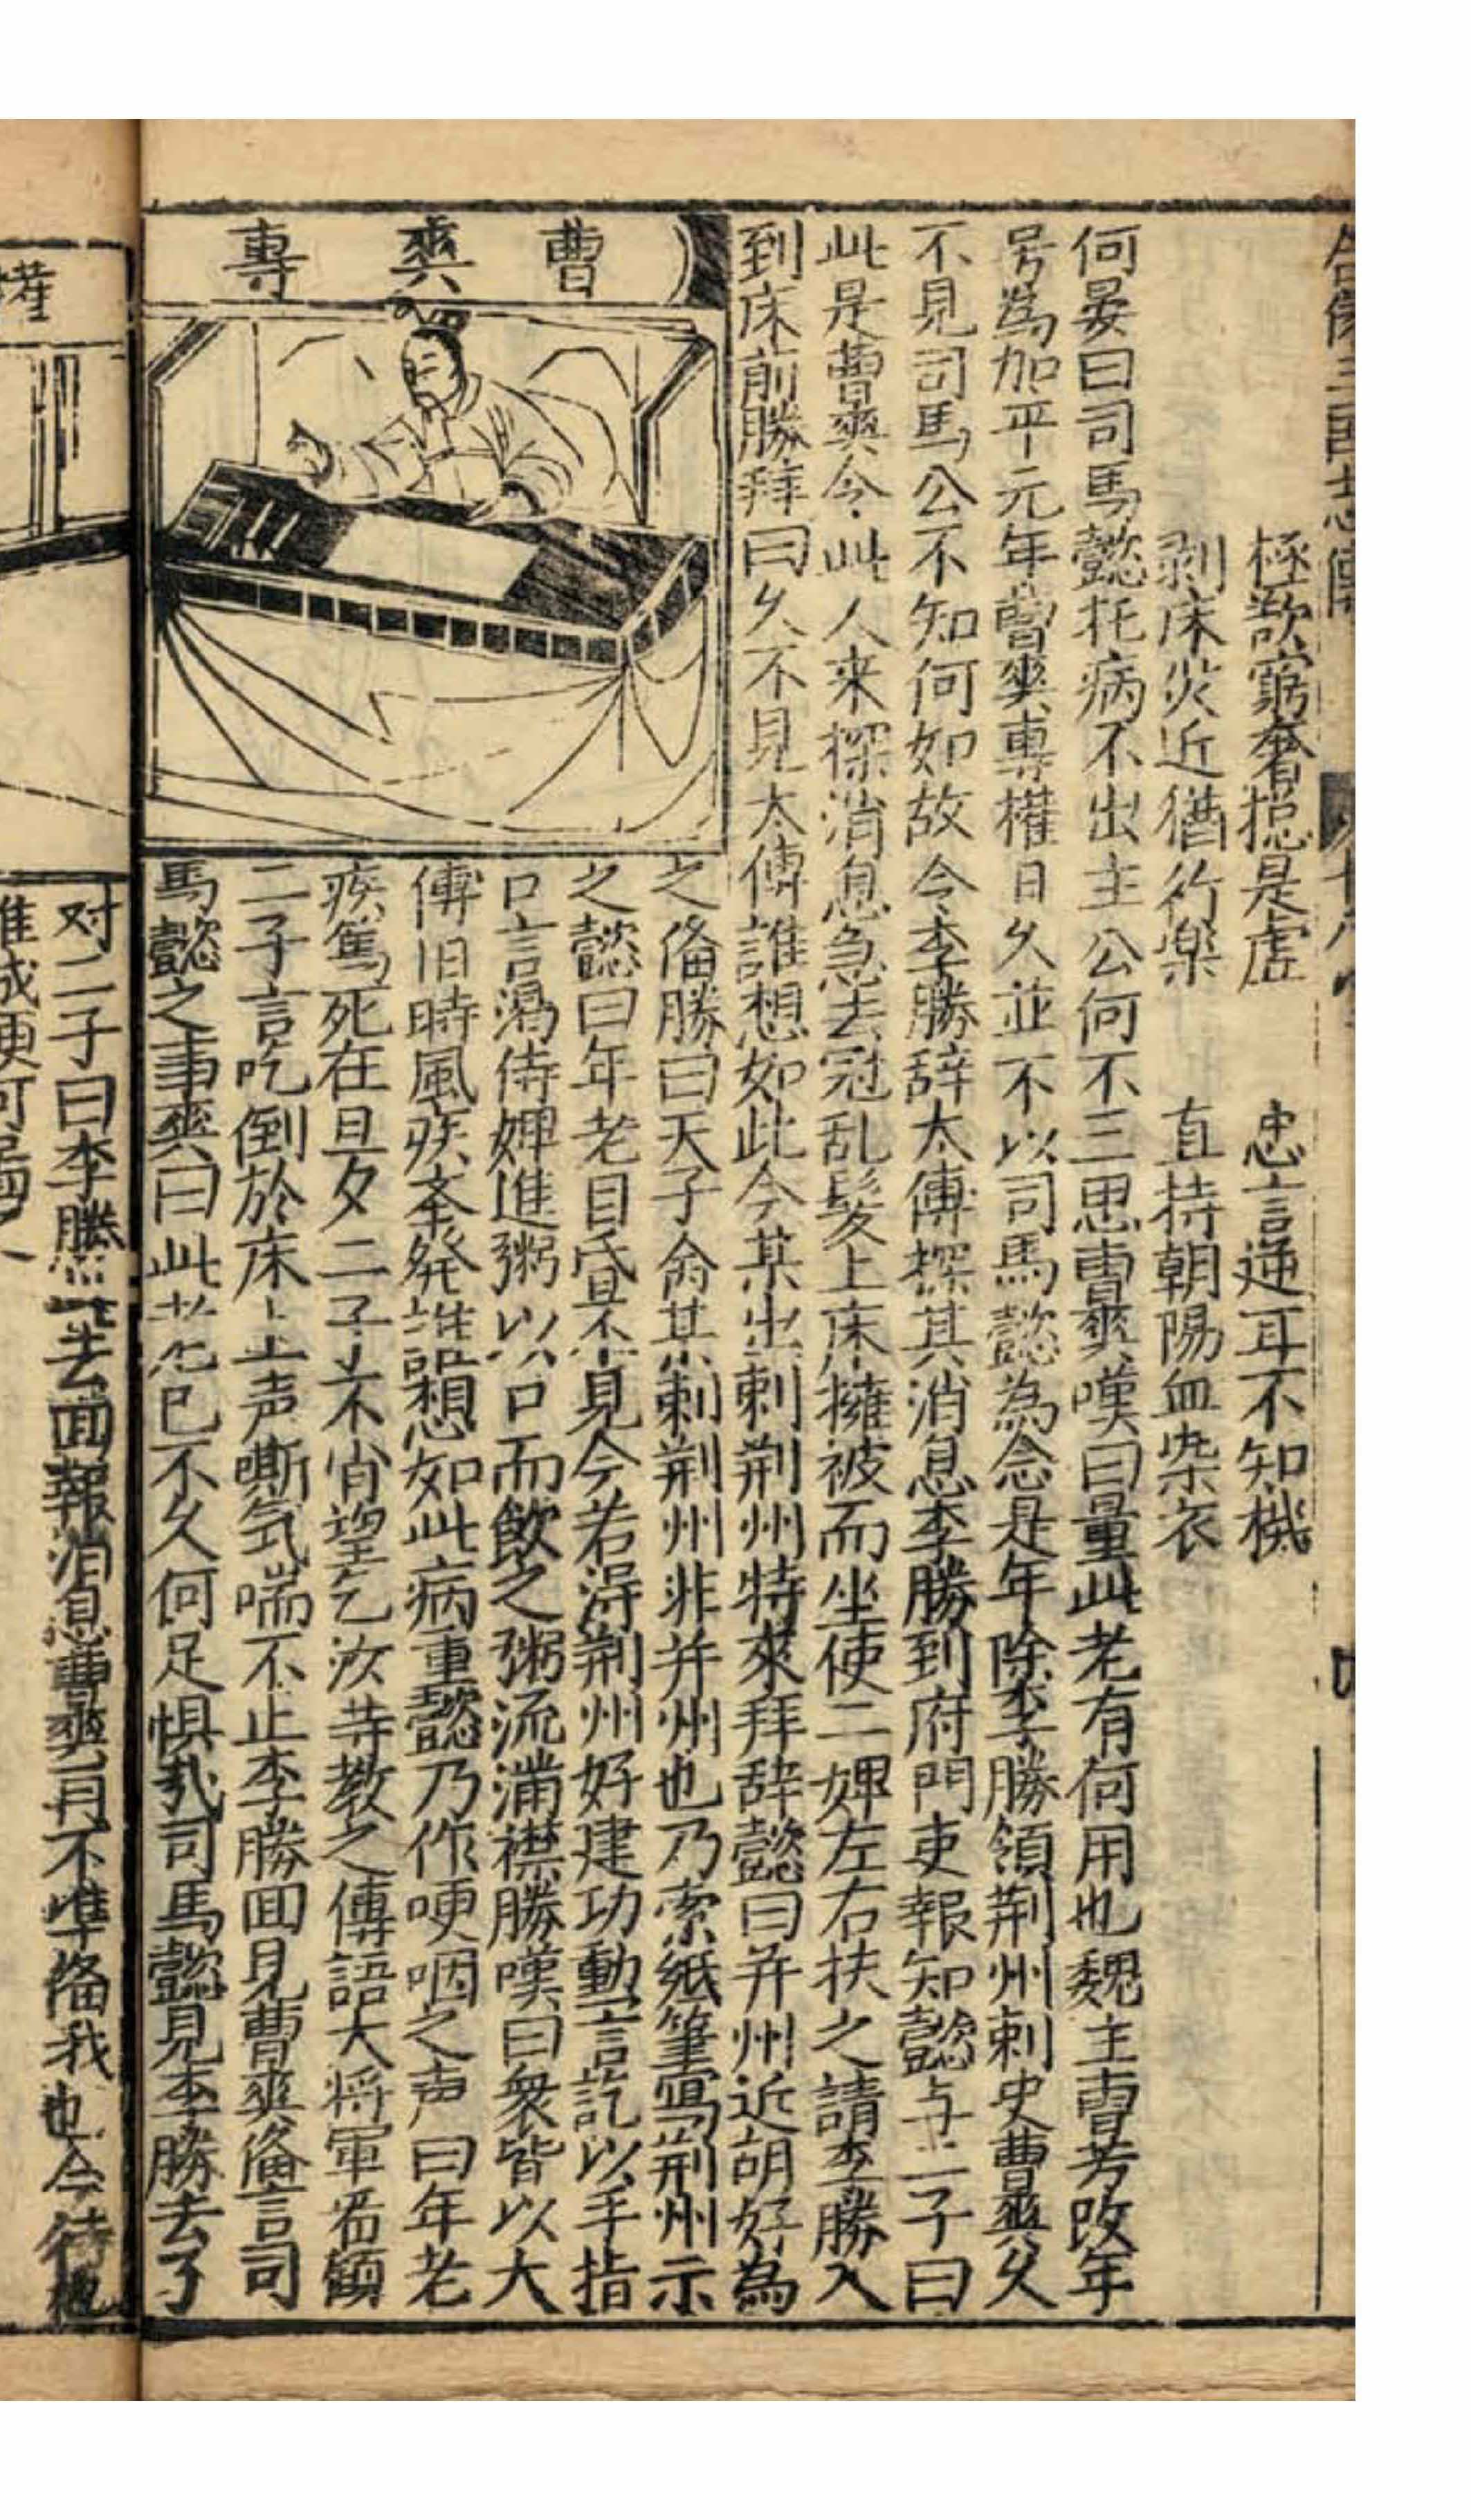 極欲窮奢揔是虛 忠言逆耳不知機
剥床災近猶行樂 直持朝陽血染衣
何晏曰司馬懿托病不出主公何不三思曹爽嘆曰量此老有何用也魏主曹芳改年
号為加平元年曹爽專權日久並不以司馬懿為念是年除李勝領荆州剌史曹爽久
不見司馬公不知何如故令李勝辞太傅探其消息李勝到府門吏報知懿与二子曰
此是曹爽令此人来探消息急去冠乱髮上床擁被而坐使二婢左右扶之請李勝入
到床前勝拜曰久不見太傅誰想如此今某出剌荆州特來拜辞懿曰并州近胡好為
曹爽專
之俻勝曰天子命某剌荆州非并州也乃索紙筆寫荆州示
之懿曰年老目昏不見今若得荆州好建功勳言訖以手指
口言渴侍婢進粥以口而飲之粥流滿襟勝嘆曰衆皆以太
傅旧時風疾紊発誰想如此病重懿乃作哽咽之声曰年老
疾篤死在旦夕二子不肖望乞汝等教之傳語大将軍若顧
二子言吃倒於床上声嘶気喘不止李勝囬見曹爽俻言司
馬懿之事爽曰此老死已不久何足惧哉司馬懿見李勝去了
權
对二子曰李勝此去囬報消息曹爽再不准俻我也今待他